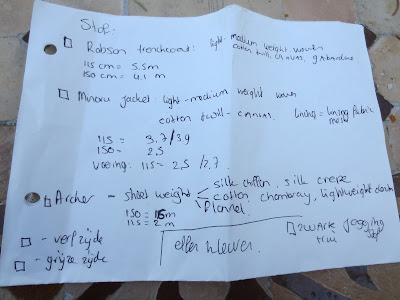 Stof:
Robson trenchcoat: light-medium weight woven
cotton twill, canvas, gabardine
115 cm = 5.5m
150 cm = 4.1 m
Minoru jacket: light-medium weight woven
cotton twill - canvas. lining = lining fabric
115 = 3.7/3.9
150 = 2,5
voering: 115 = 2,5 / 2,7
Archer - shirt weight silk chiffon, silk crepe
cotton, chambray, lightweight denim
flannel
150 = 1.5 m
115 = 2 m
- verf zijde
- grijze zijde
effen
zwarte jogging
stof